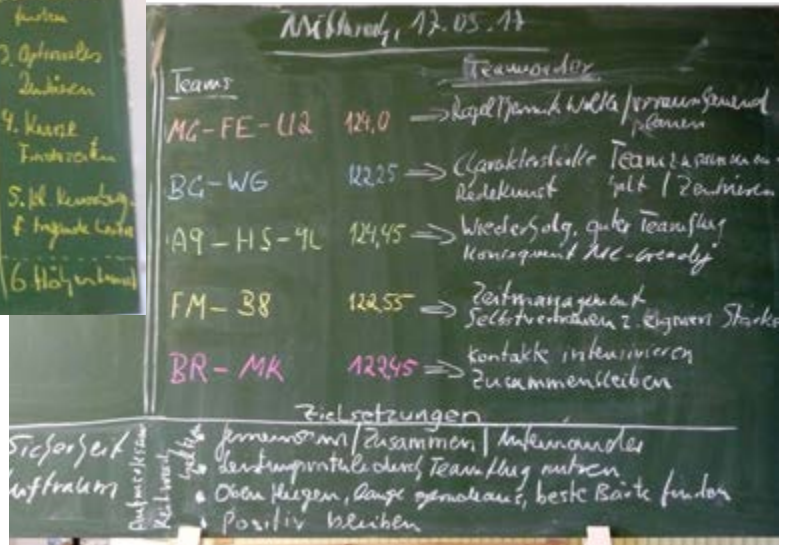 finden
3. Optimales
Zentrieren
4. Kurze
5. kl.
6. Höhenband
Mittwoch, 17.05.17
Teams
Teamorder
MG-FE-U2 124,0 => Regeltechnik Wolke / vorausschauend
planen
BG-WG 122,25 => Charakterstärke Teamzusammen-
Redekunst halt / Zentrieren
A9-HS-4L 124,45 => Wiederholg, guter Teamflug
Konsequent MC-
FM-38 122,55 => Zeitmanagement
Selbstvertrauen z. eigenen Stärke
BR-MK 122,45 => Kontakte intensivieren
Zusammenbleiben
Zielsetzungen
Sicherheit
Luftraum
gemeinsam / Zusammen / Miteinander
• durch Teamflug nutzen
• Oben fliegen, lange geradeaus, beste Bärte finden
• Positiv bleiben